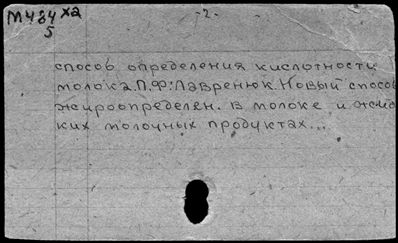 М434 ха
5
-2-
способ определения кислотности
молока. П.Ф. Лавренюк. Новый способ
жироопределен. в молоке и жид
ких молочных продуктах...